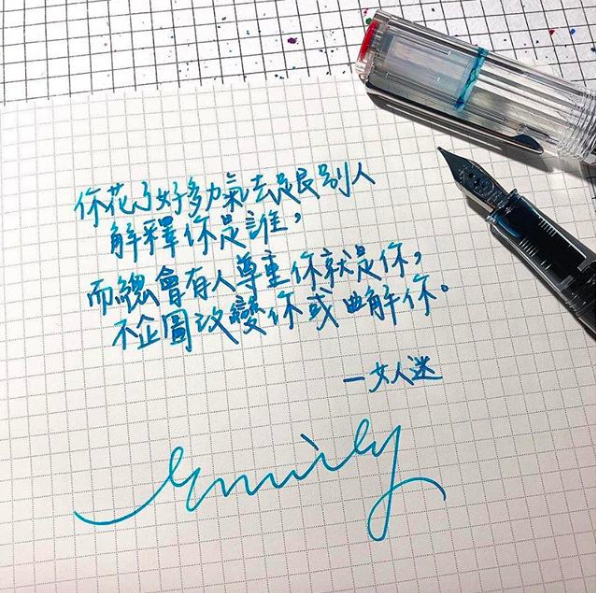 你花了好多力氣去跟別人
解釋你是誰，
而總會有人尊重你就是你，
不企圖改變你或曲解你。
—女人迷
Emily